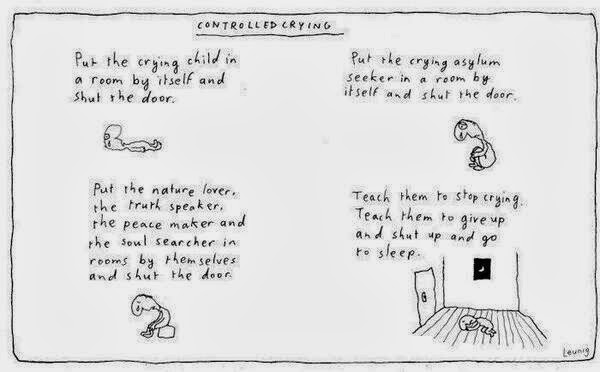 CONTROLLED CRYING
Put the crying child in
a room by itself and
shut the door.
Put the crying asylum
seeker in a room by
itself and shut the door.
Put the nature lover,
the truth speaker,
the peace maker and
the soul searcher in
rooms by themselves
and shut the door
Teach them to stop crying.
Teach them to give up
and shut up and go
to sleep.
Leunig